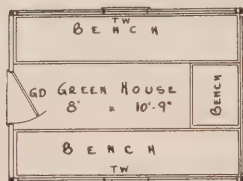 TW
BENCH
GD GREEN HOUSE
8' × 10'-9"
BENCH
BENCH
TW